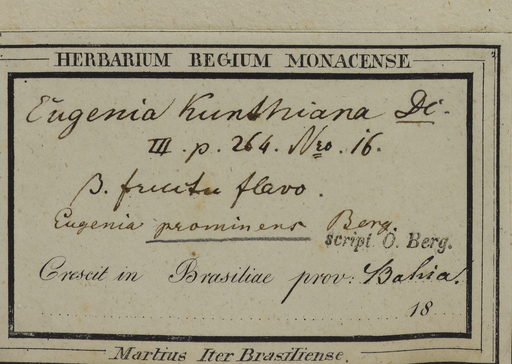 HERBARIUM REGIUM MONACENSE
Eugenia Kunthiana DC.
III. p. 264. Nro. 16.
β. fructu flavo.
Eugenia prominens Berg.
scripi. O. Berg.
Crescit in Brasiliae prov: Bahia.
18
Martius Iter Brasiliense.